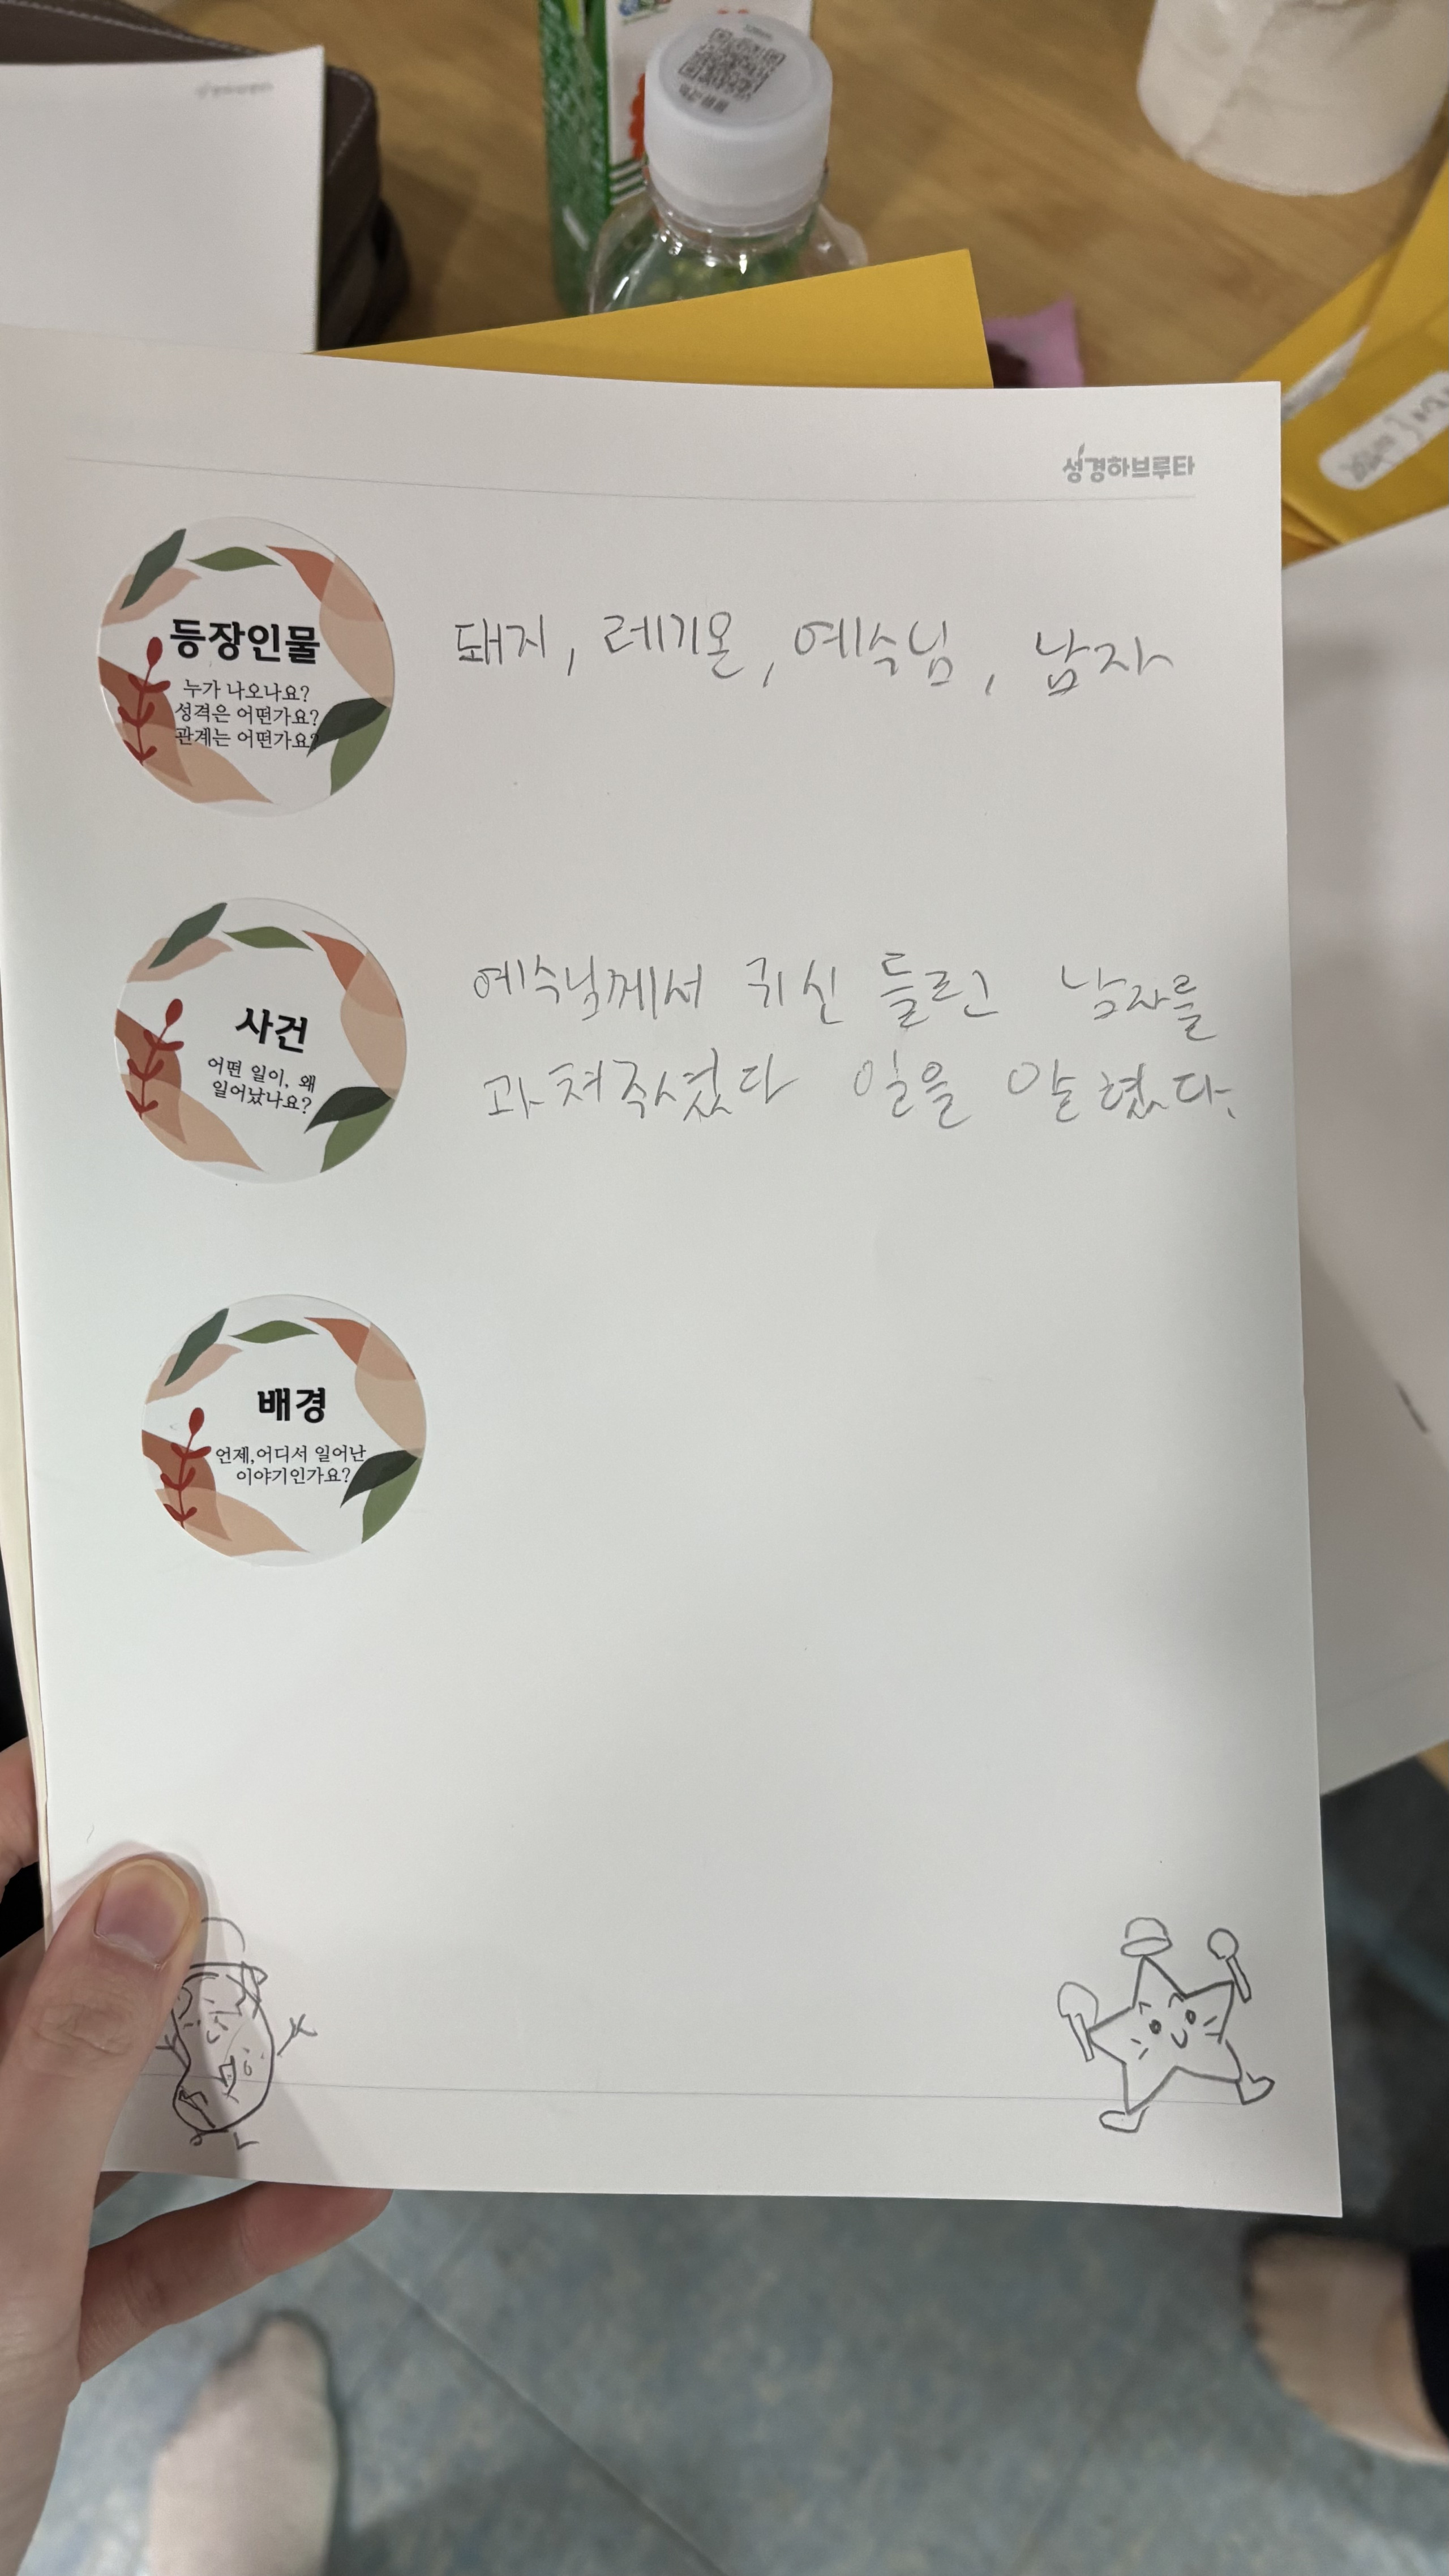 성경하브루타
등장인물
누가 나오나요?
성격은 어떤가요?
관계는 어떤가요?
돼지, 레기온, 예수님, 남자
사건
어떤 일이, 왜
일어났나요?
예수님께서 귀신 들린 남자를
고쳐주셨다 일을 말했다.
배경
언제,어디서 일어난
이야기인가요?